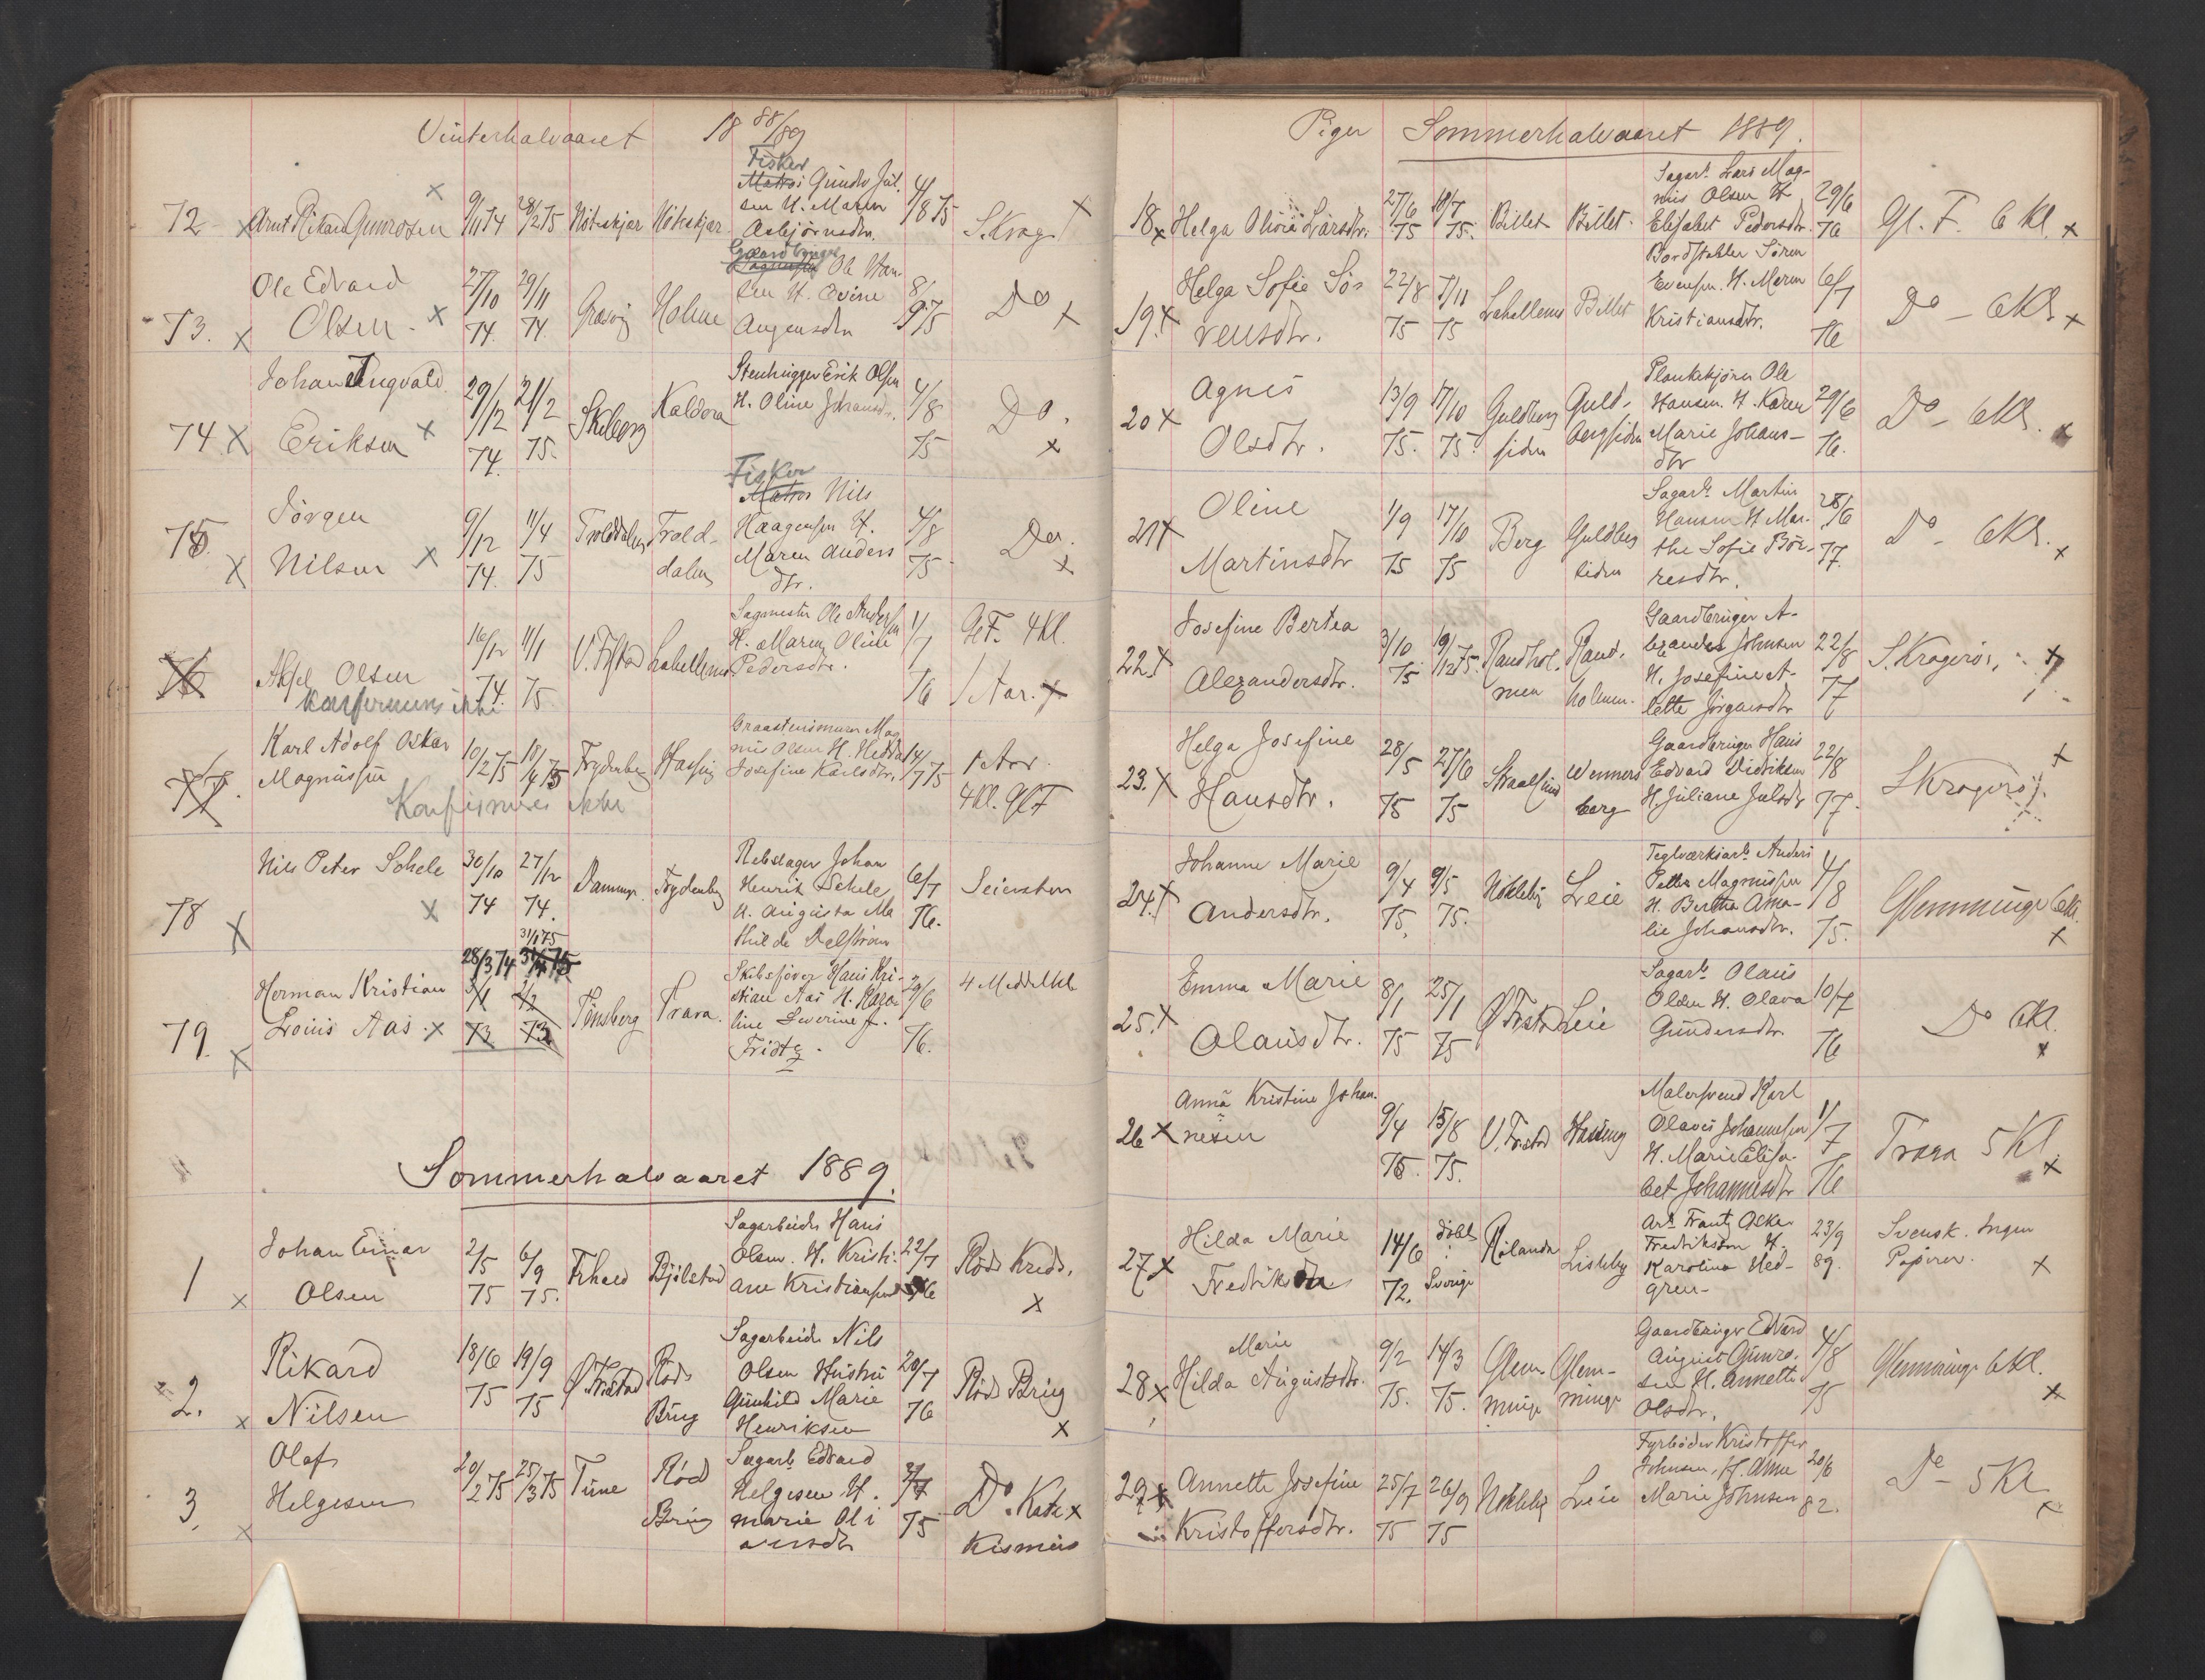 Vinterhalvaaret 18 88/89
72 x Arnt Rikard Gunrosen x 9/11 74 28/2 75 Nöteskjær Nöteskjær
Fisker
Matros Gunder Jul.
sen H. Maren
Asbjörnsdtr. 4/8 75 S. Krag. x
73. x Ole Edvard
Olsen x 27/10 74. 29/11 74. Gresvig Holme
Gaardbruger
Ole Han-
sen H. Evine
Augensdtr 8/9 75 Do x
74 x Johan Ingvald
Eriksen x 29/12 74. 21/2 75. Skeberg Kaldera
Stenhugger Erik Olsen
H. Oline Johansdr. 4/8 75 Do. x
75. x Jörgen
Nilsen x 9/12 74. 11/4 75 Trolddalen Trold-
dalen
Fisker
Matros Nils
Haagensen H.
Maren Anders
dtr. 4/8 75 Do. x
76 Aksel Olsen 16/12 74. 11/1 75 V. Frstad Labellmo
Sagmester Ole Andersen
H. Maren Oline
Pedersdtr. 1/7 76 Gl. F. 4 Kl.
1 Aar. x
Konfirmeres ikke
77. Karl Adolf Oskar
Magnussen 10/2 75 18/4 75 Frydenberg Hassing
Graastensmurer Mag
nus Olsen H. Hedda
Josefine Karlsdtr. 14/7 75 1 Aar.
4 Kl. Gl F
Konfirmeres ikke
78 x Nils Peter Schele x 30/10 74 27/12 74. Dammyr. Frydenberg
Rebslager Johan
Henrik Schele
H. Augusta Ma
thilde 6/7 76. Seiersten
79. x Herman Kristian
Louis Aas. x 28/3 74 31/1 75
3/1 73 2/2 73 Tönsberg Trara.
Skibsförer Hans Kri-
stian Aas H. Karo-
line Severine f.
Fridtz. 29/6 76. 4 Middelkl.
Sommerhalvaaret 1889.
1 x Johan Einar
Olsen 2/5 75 6/9 75. Frhald Bjölstad
Sagarbeider Hans
Olsen. H. Kristi-
ane Kristiansen 22/7 76 Röds Kreds.
x
2. x Rikard
Nilsen 18/6 75 19/9 75 Ø. Frstad Röds
Brug
Sagarbeider Nils
Olsen Hustru
Gunhild Marie
Henriksen 20/7 76 Röds Brug
x
3. x Olaf
Helgesen 20/2 75 25/3 75 Tune Röd
Brug
Sagarb. Edvard
Helgesen H.
Marie Oli
versdtr 75 Do. Kate x
kismus
Piger Sommerhalvaaret 1889.
18 x Helga Olivia Larsdtr. 27/6 75 18/7 75. Billet Billet.
Sagarb. Lars Mag-
nus Olsen H
Elisabet Pedersdtr. 29/6 76 Gl. F. 6 Kl. x
19. x Helga Sofie Sö-
rensdtr. 22/8 75 7/11 75 Labellmo Billet
Bordstabler Sören
Evensen. H. Maren
Kristiansdtr. 6/7 76 Do - 6 Kl. x
20 x Agnes
Olsdtr. 13/9 75. 17/10 75. Guldberg
siden Guld-
bergsiden
Plankekjörer Ole
Hansen. H. Karen
Marie Johans-
dtr 29/6 76. Do - 6 Kl. x
21 x Oline
Martinsdtr 1/9 75 17/10 75 Berg Guldberg
siden
Sagarb. Martin
Hansen H. Mar-
the Sofie Bör-
resdtr. 28/6 77. Do - 6 Kl. x
22. x Josefine Bertea
Alexandersdtr. 3/10 75 19/12 75. Randhol-
men Rand-
holmen.
Gaardbruger A-
lexander Johnsen
H. Josefine A-
lette Jörgensdtr 22/8 77 S. Krageröi. x
23. x Helga Josefine
Hansdtr. 28/5 75 27/6 75 Wenners
berg
Gaardbruger Hans
Edvard Didriksen
H. Juliane Julsdtr 22/8 77. S Krageröi. x
24. x Johanne Marie
Andersdtr. 9/4 75. 9/5 75. Nökleby Leie
Teglværksarb. Anders
Petter Magnussen
H. Bertha Ama-
lie Johansdtr. 4/8 75. Glemminge 6 Kl.
x
25. x Emma Marie
Olausdtr. 8/1 75 25/1 75 Ø Frstad Leie
Sagarb. Olaus
Olsen H. Olava
Gundersdtr. 10/7 76 Do 6 Kl.
x
26 x Anna Kristine Johan-
nesen 9/4 75. 15/8 75. V. Frstad Hassing
Malersvend Karl
Olaves Johannesen
H. Marie Elisa-
bet Johannesdtr 1/7 76 Trara 5 Kl.
x
27 x Hilda Marie
Fredriksdtr 14/6 72. döbt
i
Sverige Rölanda Lisleby
Arb. Frantz Oskar
Fredriksson H.
Karolina Hed-
gren- 23/9 89. Svensk. Ingen
Papirer. x
28 x Marie
Hilda Augustsdtr. 9/2 75. 14/3 75. Glem
minge Glem-
minge
Gaardbruger Edvard
August Gunro-
sen H. Annette
Olsdtr. 4/8 75 Glemminge 6 Kl.
x
29 x Annette Josefine
Kristoffersdtr. 25/7 75 26/9 75 Nökleby Leie
Fyrböder Kristoffer
Johnsen, H. Anne
Marie Johnsen 20/6 82. Do - 5 Kl
x